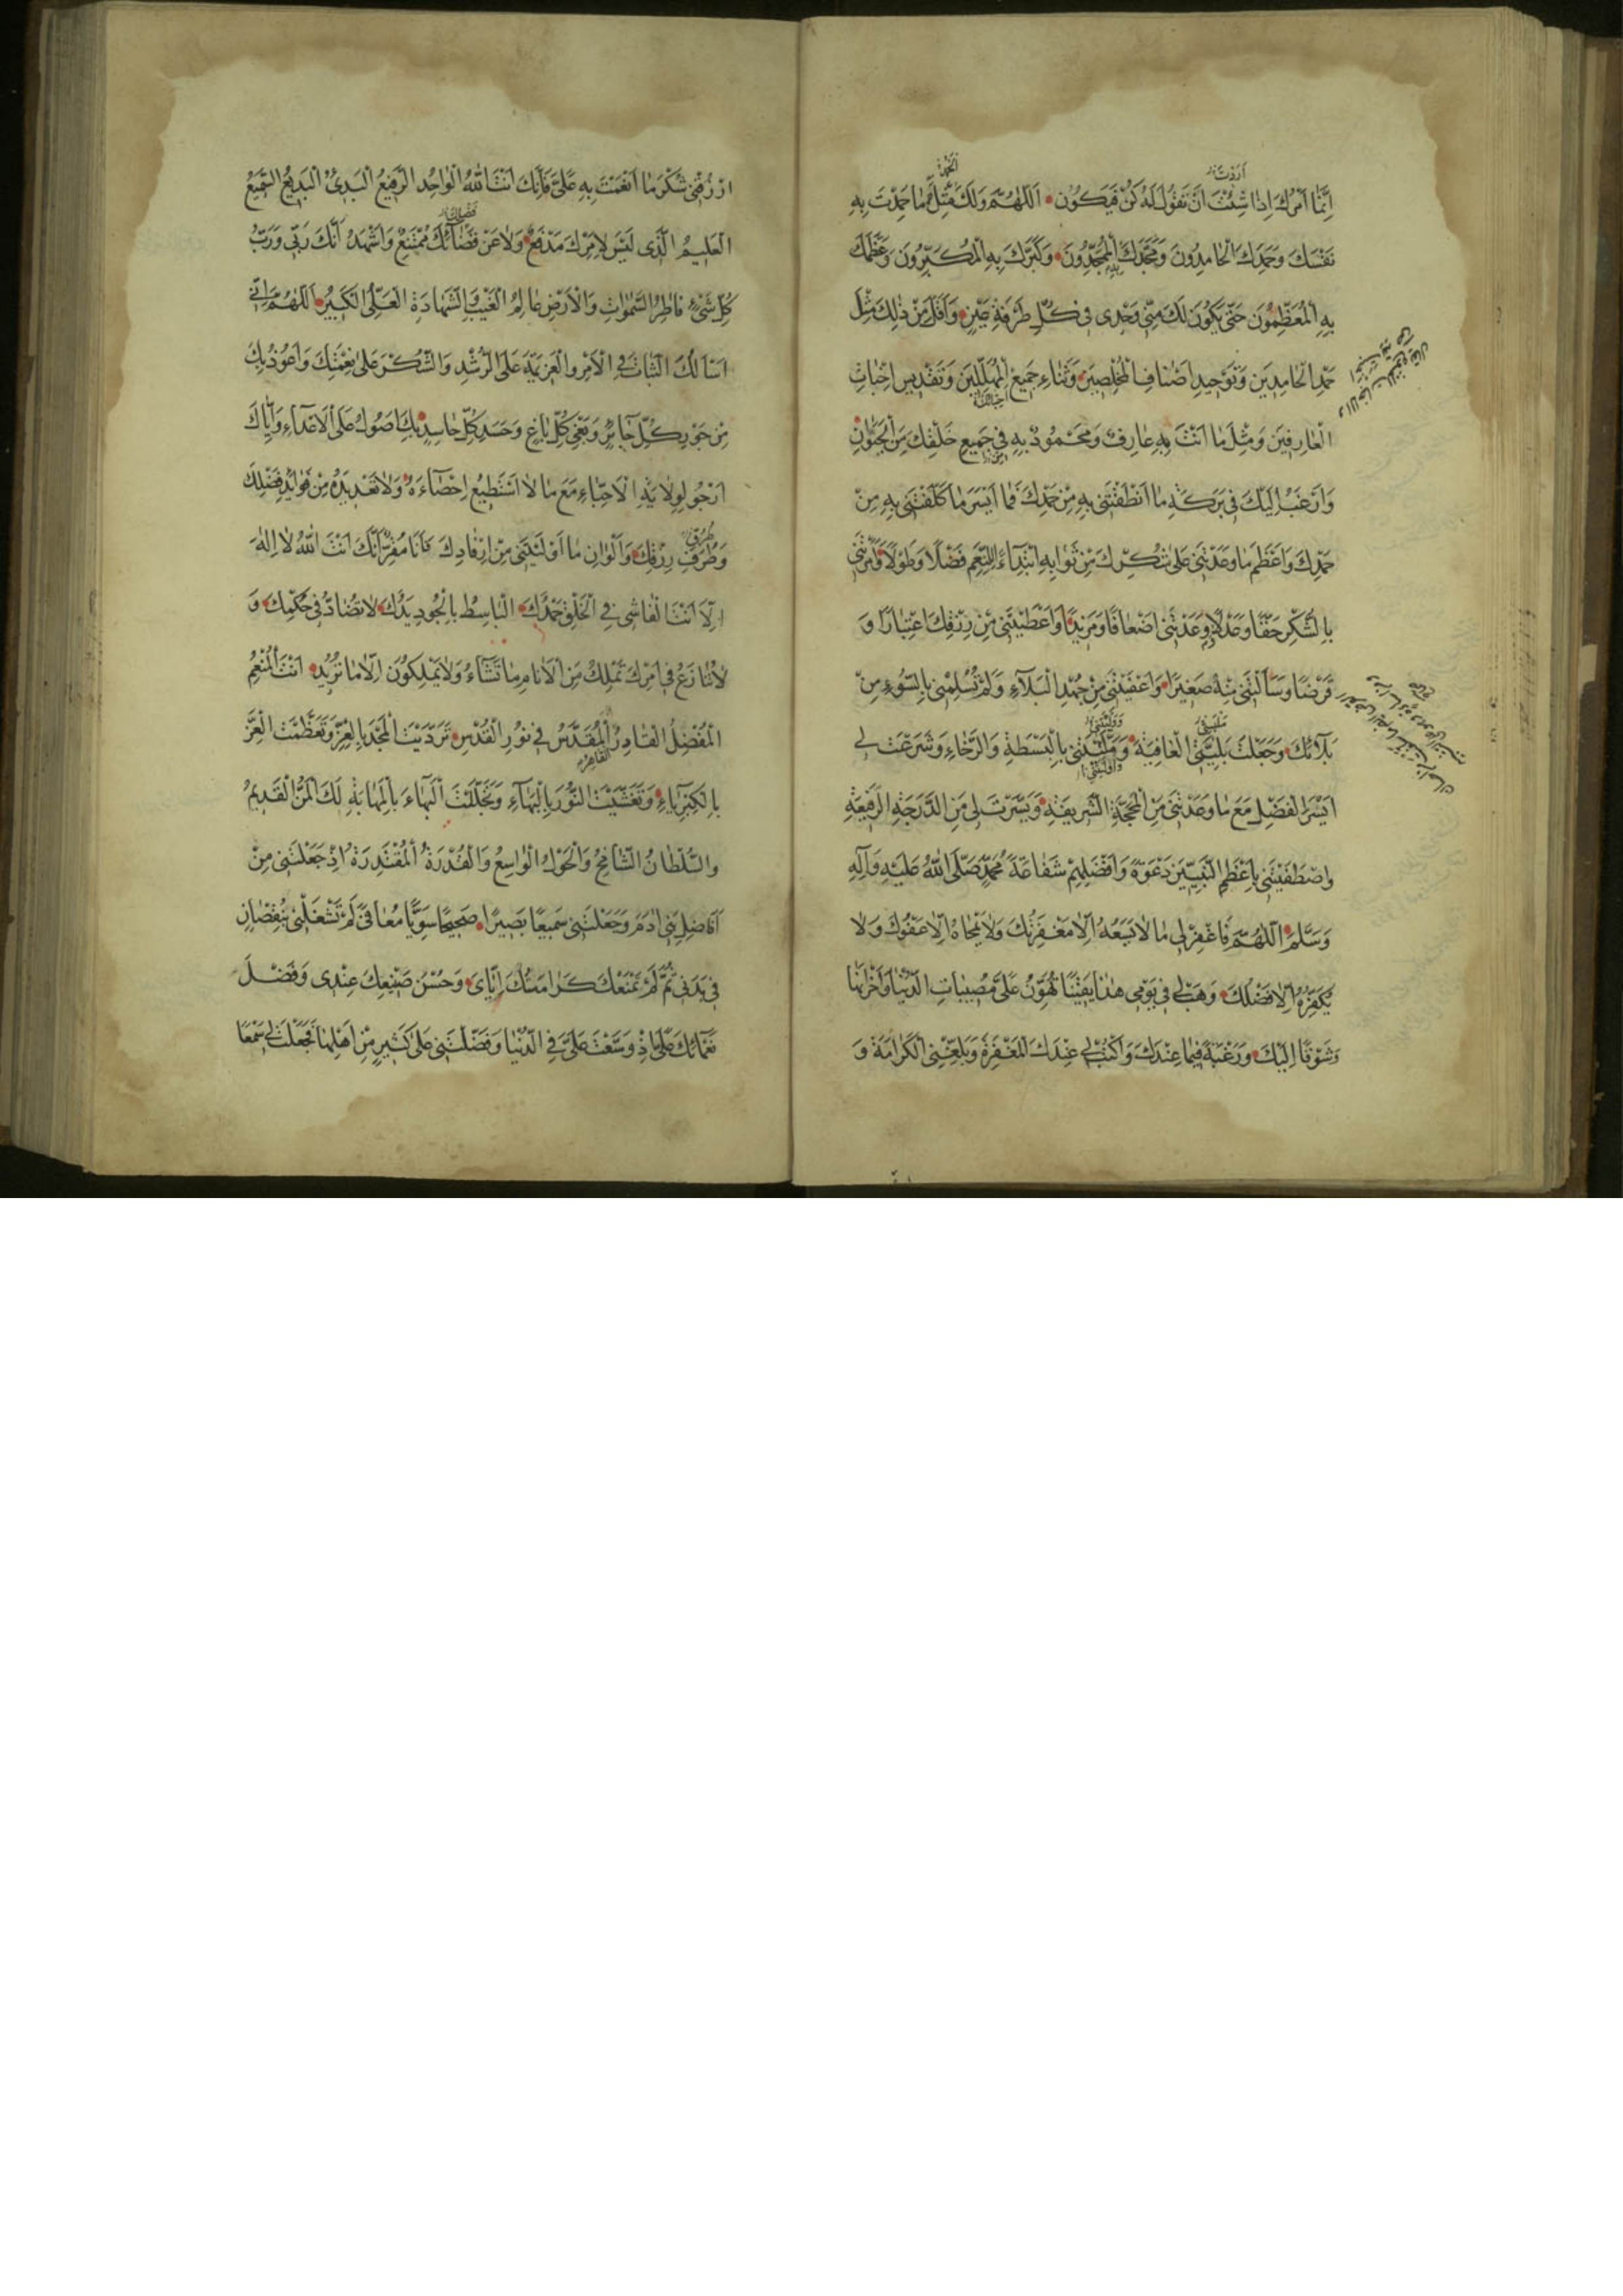 اِنَّمَا اَمْرُكَ اِذَا شِئْتَ اَنْ تَقُولَ لَهُ كُنْ فَيَكُونُ اَللّٰهُمَّ وَلَكَ مِثْلُ مَا حَمِدْتَ بِهِ
اَرَدْتَ
نَفْسَكَ وَحَمِدَكَ الْحَامِدُونَ وَمَجَّدَكَ بِهِ الْمُمَجِّدُونَ وَكَبَّرَكَ بِهِ الْمُكَبِّرُونَ وَعَظَّمَكَ
بِهِ الْمُعَظِّمُونَ حَتّٰى يَكُونَ لَكَ مِنّى وَحْدى فى كُلِّ طَرْفَةِ عَيْنٍ وَاَقَلَّ مِنْ ذٰلِكَ مِثْلُ
حَمْدِ الْحَامِدِينَ وَتَوْحِيدِ اَصْنَافِ الْمُخْلِصِينَ وَثَنَاءِ جَمِيعِ الْمُهَلِّلِينَ وَتَقْدِيسِ
الْعَارِفِينَ وَمِثْلَ مَا اَنْتَ بِهِ عَارِفٌ وَمَحْمُودٌ بِهِ فِى جَمِيعِ خَلْقِكَ مِنَ الْحَيَوَانِ
وَاَرْغَبُ اِلَيْكَ فِى بَرَكَةِ مَا اَنْطَقْتَنِى بِهِ مِنْ حَمْدِكَ فَمَا اَيْسَرَ مَا كَلَّفْتَنِى بِهِ مِنْ
حَمْدِكَ وَاَعْظَمَ مَا وَعَدْتَنِى عَلٰى شُكْرِكَ مِنْ ثَوَابِهِ ابْتِدَاءً لِلنِّعَمِ فَضْلًا وَطَوْلًا وَاَمَرْتَنِى
بِالشُّكْرِ حَقًّا وَعَدْلًا وَوَعَدْتَنِى اَضْعَافًا وَمَزِيدًا وَاَعْطَيْتَنِى مِنْ رِزْقِكَ اعْتِبَارًا وَ
فَرْضًا وَسَاَلْتَنِى مِنْهُ صَغِيرًا وَاَعْفَيْتَنِى مِنْ جُهْدِ الْبَلَاءِ وَلَمْ تُسْلِمْنِى بِالسُّوءِ مِنْ
بَلَائِكَ وَجَعَلْتَ بَلِيَّتِىَ الْعَافِيَةَ وَوَلَّيْتَنِى بِالْبَسْطَةِ وَالرَّخَاءِ وَشَرَعْتَ لِى
اَيْسَرَ الْفَضْلِ مَعَ مَا وَعَدْتَنِى مِنَ الْمَحَجَّةِ الشَّرِيفَةِ وَيَسَّرْتَ لِى مِنَ الدَّرَجَةِ الرَّفِيعَةِ
وَاصْطَفَيْتَنِى بِاَعْظَمِ النَّبِيِّينَ دَعْوَةً وَاَفْضَلِهِمْ شَفَاعَةً مُحَمَّدٍ صَلَّى اللّٰهُ عَلَيْهِ وَاٰلِهِ
وَسَلَّمَ اَللّٰهُمَّ فَاغْفِرْ لِى مَا لَا يَسَعُهُ اِلَّا مَغْفِرَتُكَ وَلَا يَمْحَاهُ اِلَّا عَفْوُكَ وَلَا
يُكَفِّرُهُ اِلَّا فَضْلُكَ وَهَبْ لِى فِى يَوْمِى هٰذَا يَقِينًا تُهَوِّنُ عَلَىَّ مُصِيبَاتِ الدُّنْيَا وَاَحْزَانَهَا
وَشَوْقًا اِلَيْكَ وَرَغْبَةً فِيمَا عِنْدَكَ وَاكْتُبْ لِى عِنْدَكَ الْمَغْفِرَةَ وَبَلِّغْنِى الْكَرَامَةَ وَ
ارْزُقْنِى شُكْرَ مَا اَنْعَمْتَ بِهِ عَلَىَّ فَاِنَّكَ اَنْتَ اللّٰهُ الْوَاحِدُ الرَّفِيعُ الْبَدِىءُ الْبَدِيعُ السَّمِيعُ
الْعَلِيمُ الَّذِى لَيْسَ لِاَمْرِكَ مَدْفَعٌ وَلَا عَنْ قَضَائِكَ مُمْتَنِعٌ وَاَشْهَدُ اَنَّكَ رَبِّى وَرَبُّ
كُلِّ شَىْءٍ فَاطِرُ السَّمٰوَاتِ وَالْاَرْضِ عَالِمُ الْغَيْبِ وَالشَّهَادَةِ الْعَلِىُّ الْكَبِيرُ اَللّٰهُمَّ اِنِّى
اَسْاَلُكَ الثَّبَاتَ فِى الْاَمْرِ وَالْعَزِيمَةَ عَلَى الرُّشْدِ وَالشُّكْرَ عَلٰى نِعْمَتِكَ وَاَعُوذُ بِكَ
مِنْ جَوْرِ كُلِّ جَائِرٍ وَبَغْىِ كُلِّ بَاغٍ وَحَسَدِ كُلِّ حَاسِدٍ بِكَ اَصُولُ عَلَى الْاَعْدَاءِ وَاِيَّاكَ
اَرْجُو لِوِلَايَةِ الْاَحِبَّاءِ مَعَ مَا لَا اَسْتَطِيعُ اِحْصَاءَهُ وَلَا تَعْدِيدَهُ مِنْ فَوَائِدِ فَضْلِكَ
وَطُرَفِ رِزْقِكَ وَاَلْوَانِ مَا اَوْلَيْتَنِى مِنْ اِرْفَادِكَ فَاَنَا مُقِرٌّ بِاَنَّكَ اَنْتَ اللّٰهُ لَا اِلٰهَ
اِلَّا اَنْتَ الْفَاشِى فِى الْخَلْقِ حَمْدُكَ الْبَاسِطُ بِالْجُودِ يَدُكَ لَا تُضَادُّ فِى حُكْمِكَ وَ
لَا تُنَازَعُ فِى اَمْرِكَ تَمْلِكُ مِنَ الْاَنَامِ مَا تَشَاءُ وَلَا يَمْلِكُونَ اِلَّا مَا تُرِيدُ اَنْتَ الْمُنْعِمُ
الْمُفْضِلُ الْقَادِرُ الْمُقَدَّسُ فِى نُورِ الْقُدْسِ تَرَدَّيْتَ الْمَجْدَ بِالْعِزِّ وَتَعَظَّمْتَ الْعِزَّ
الْقَاهِرُ
بِالْكِبْرِيَاءِ وَتَغَشَّيْتَ النُّورَ بِالْبَهَاءِ وَتَجَلَّلْتَ الْبَهَاءَ بِالْمَهَابَةِ لَكَ الْمَنُّ الْقَدِيمُ
وَالسُّلْطَانُ الشَّامِخُ وَالْحَوْلُ الْوَاسِعُ وَالْقُدْرَةُ الْمُقْتَدِرَةُ اِذْ جَعَلْتَنِى مِنْ
اَفَاضِلِ بَنِى اٰدَمَ وَجَعَلْتَنِى سَمِيعًا بَصِيرًا صَحِيحًا سَوِيًّا مُعَافًى لَمْ تَشْغَلْنِى بِنُقْصَانٍ
فِى بَدَنِى ثُمَّ لَمْ تَمْنَعْكَ كَرَامَتُكَ اِيَّاىَ وَحُسْنُ صَنِيعِكَ عِنْدِى وَفَضْلُ
نَعْمَائِكَ عَلَىَّ اِذْ وَسَّعْتَ عَلَىَّ فِى الدُّنْيَا وَفَضَّلْتَنِى عَلٰى كَثِيرٍ مِنْ اَهْلِهَا فَجَعَلْتَ لِى سَمْعًا